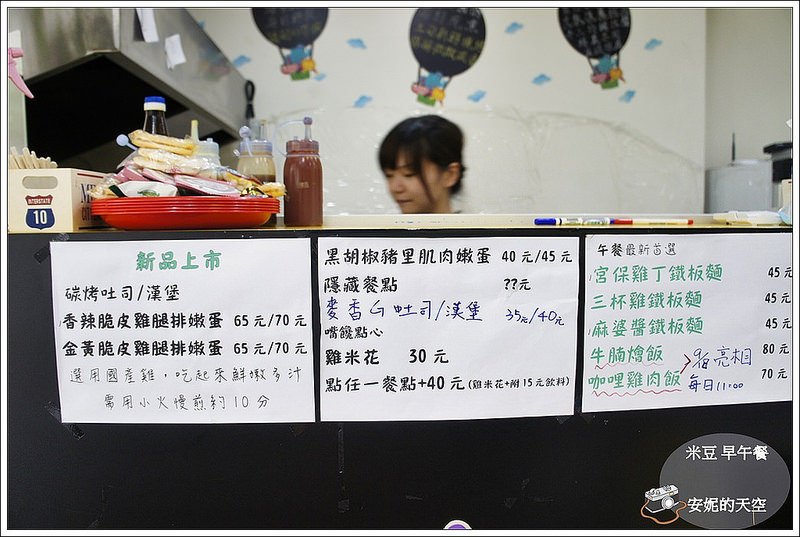 INTERSTATE
10
新品上市
碳烤吐司/漢堡
香辣脆皮雞腿排嫩蛋 65元/70元
金黃脆皮雞腿排嫩蛋 65元/70元
選用國產雞,吃起來鮮嫩多汁
需用小火慢煎約10分
黑胡椒豬里肌肉嫩蛋 40元/45元
隱藏餐點 ??元
麥香G吐司/漢堡 35元/40元
嘴饞點心
雞米花 30元
點任一餐點+40元(雞米花+附15元飲料)
午餐最新首選
宮保雞丁鐵板麵 45元
三杯雞鐵板麵 45元
麻婆醬鐵板麵 45元
牛腩燴飯 80元
咖哩雞肉飯 70元
9/6亮相
每日11:00
米豆 早午餐
安妮的天空